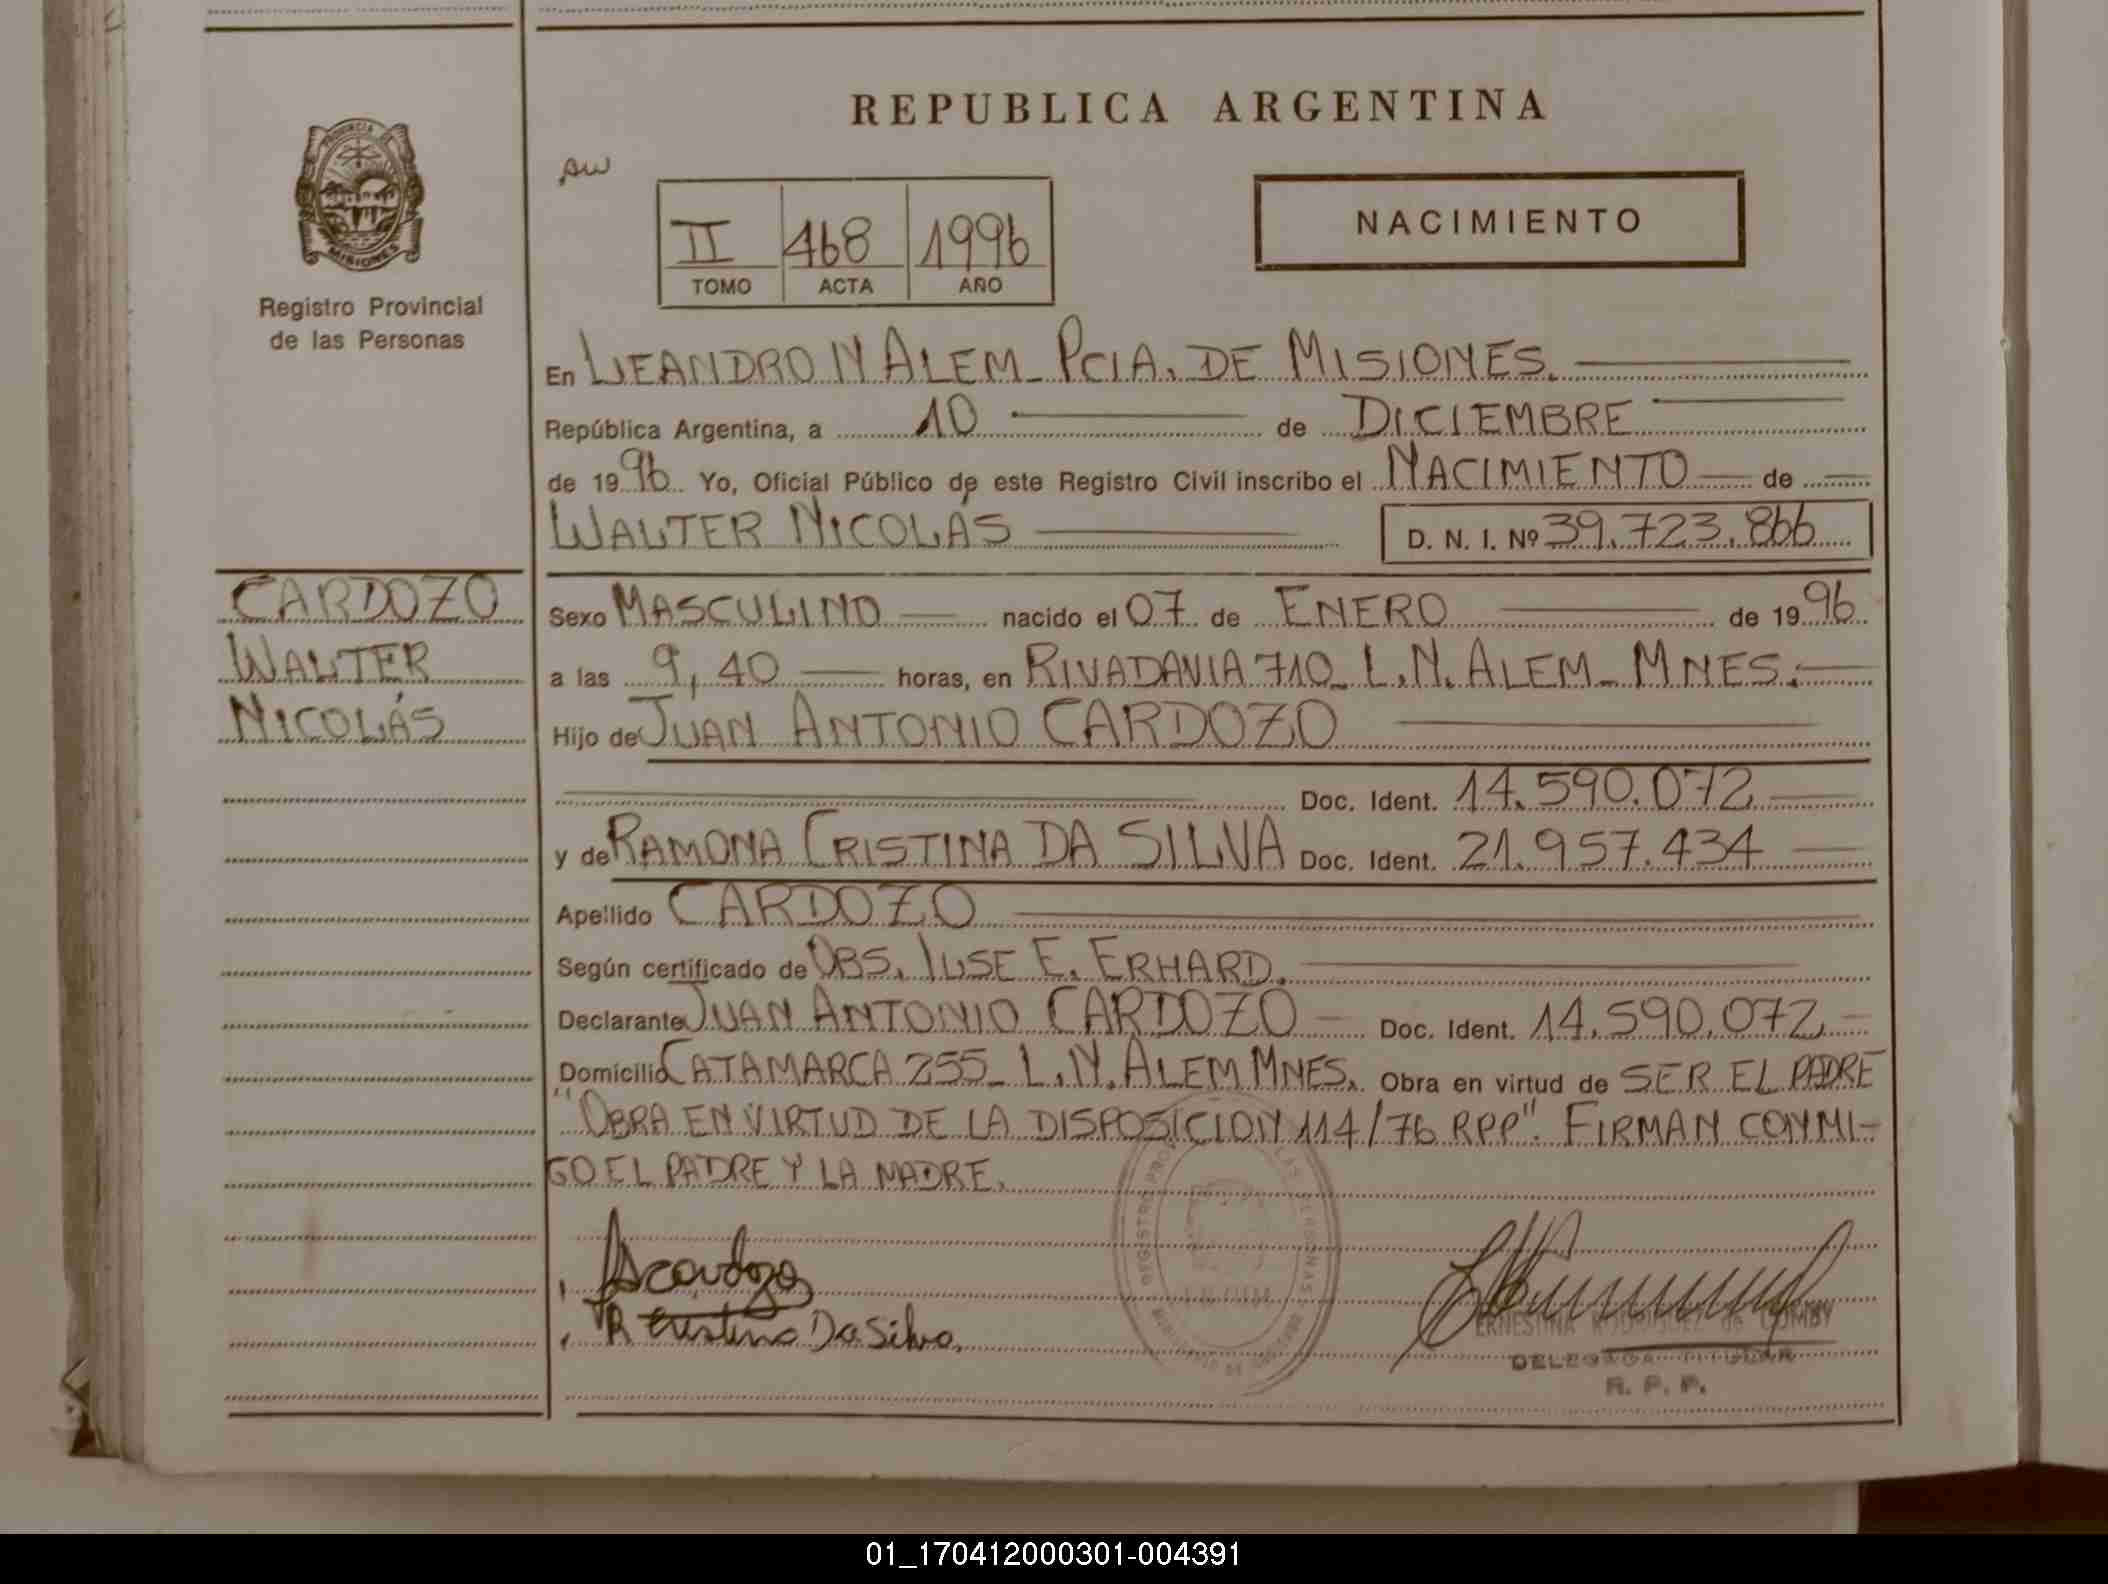 REPUBLICA ARGENTINA
PROVINCIA
MISIONES
Registro Provincial
de las Personas
AW
II 468 1996
TOMO ACTA AÑO
NACIMIENTO
En LEANDRO N ALEM_ PCIA. DE MISIONES.
República Argentina, a 10 de DICIEMBRE
de 1996 Yo, Oficial Público de este Registro Civil inscribo el NACIMIENTO de
WALTER NICOLÁS D. N. I. Nº 39.723.866
CARDOZO
WALTER
NICOLÁS
Sexo MASCULINO nacido el 07 de ENERO de 1996
a las 9,40 horas, en RIVADAVIA 710_ L.N. ALEM_ MNES.
Hijo de JUAN ANTONIO CARDOZO
Doc. Ident. 14.590.072
y de RAMONA CRISTINA DA SILVA Doc. Ident. 21.957.434
Apellido CARDOZO
Según certificado de OBS. ILSE E. ERHARD.
Declarante JUAN ANTONIO CARDOZO Doc. Ident. 14.590.072
Domicilio CATAMARCA 255_ L.N. ALEM MNES. Obra en virtud de SER EL PADRE
"OBRA EN VIRTUD DE LA DISPOSICION 114/76 RPP". FIRMAN CONMI-
GO EL PADRE Y LA MADRE.
R Cristina Da Silva
ERNESTINA RODRIGUEZ de
DELEGADA TITULAR
R. P. P.
01_170412000301-004391